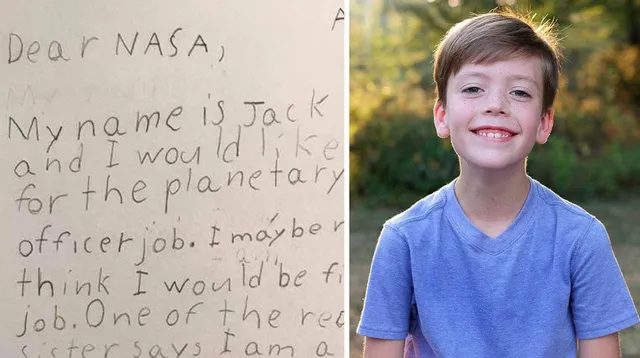 A
Dear NASA,
My name is Jack
and I would like
for the planetary
officer job. I maybe
think I would be fi
job. One of the
sister says I am a